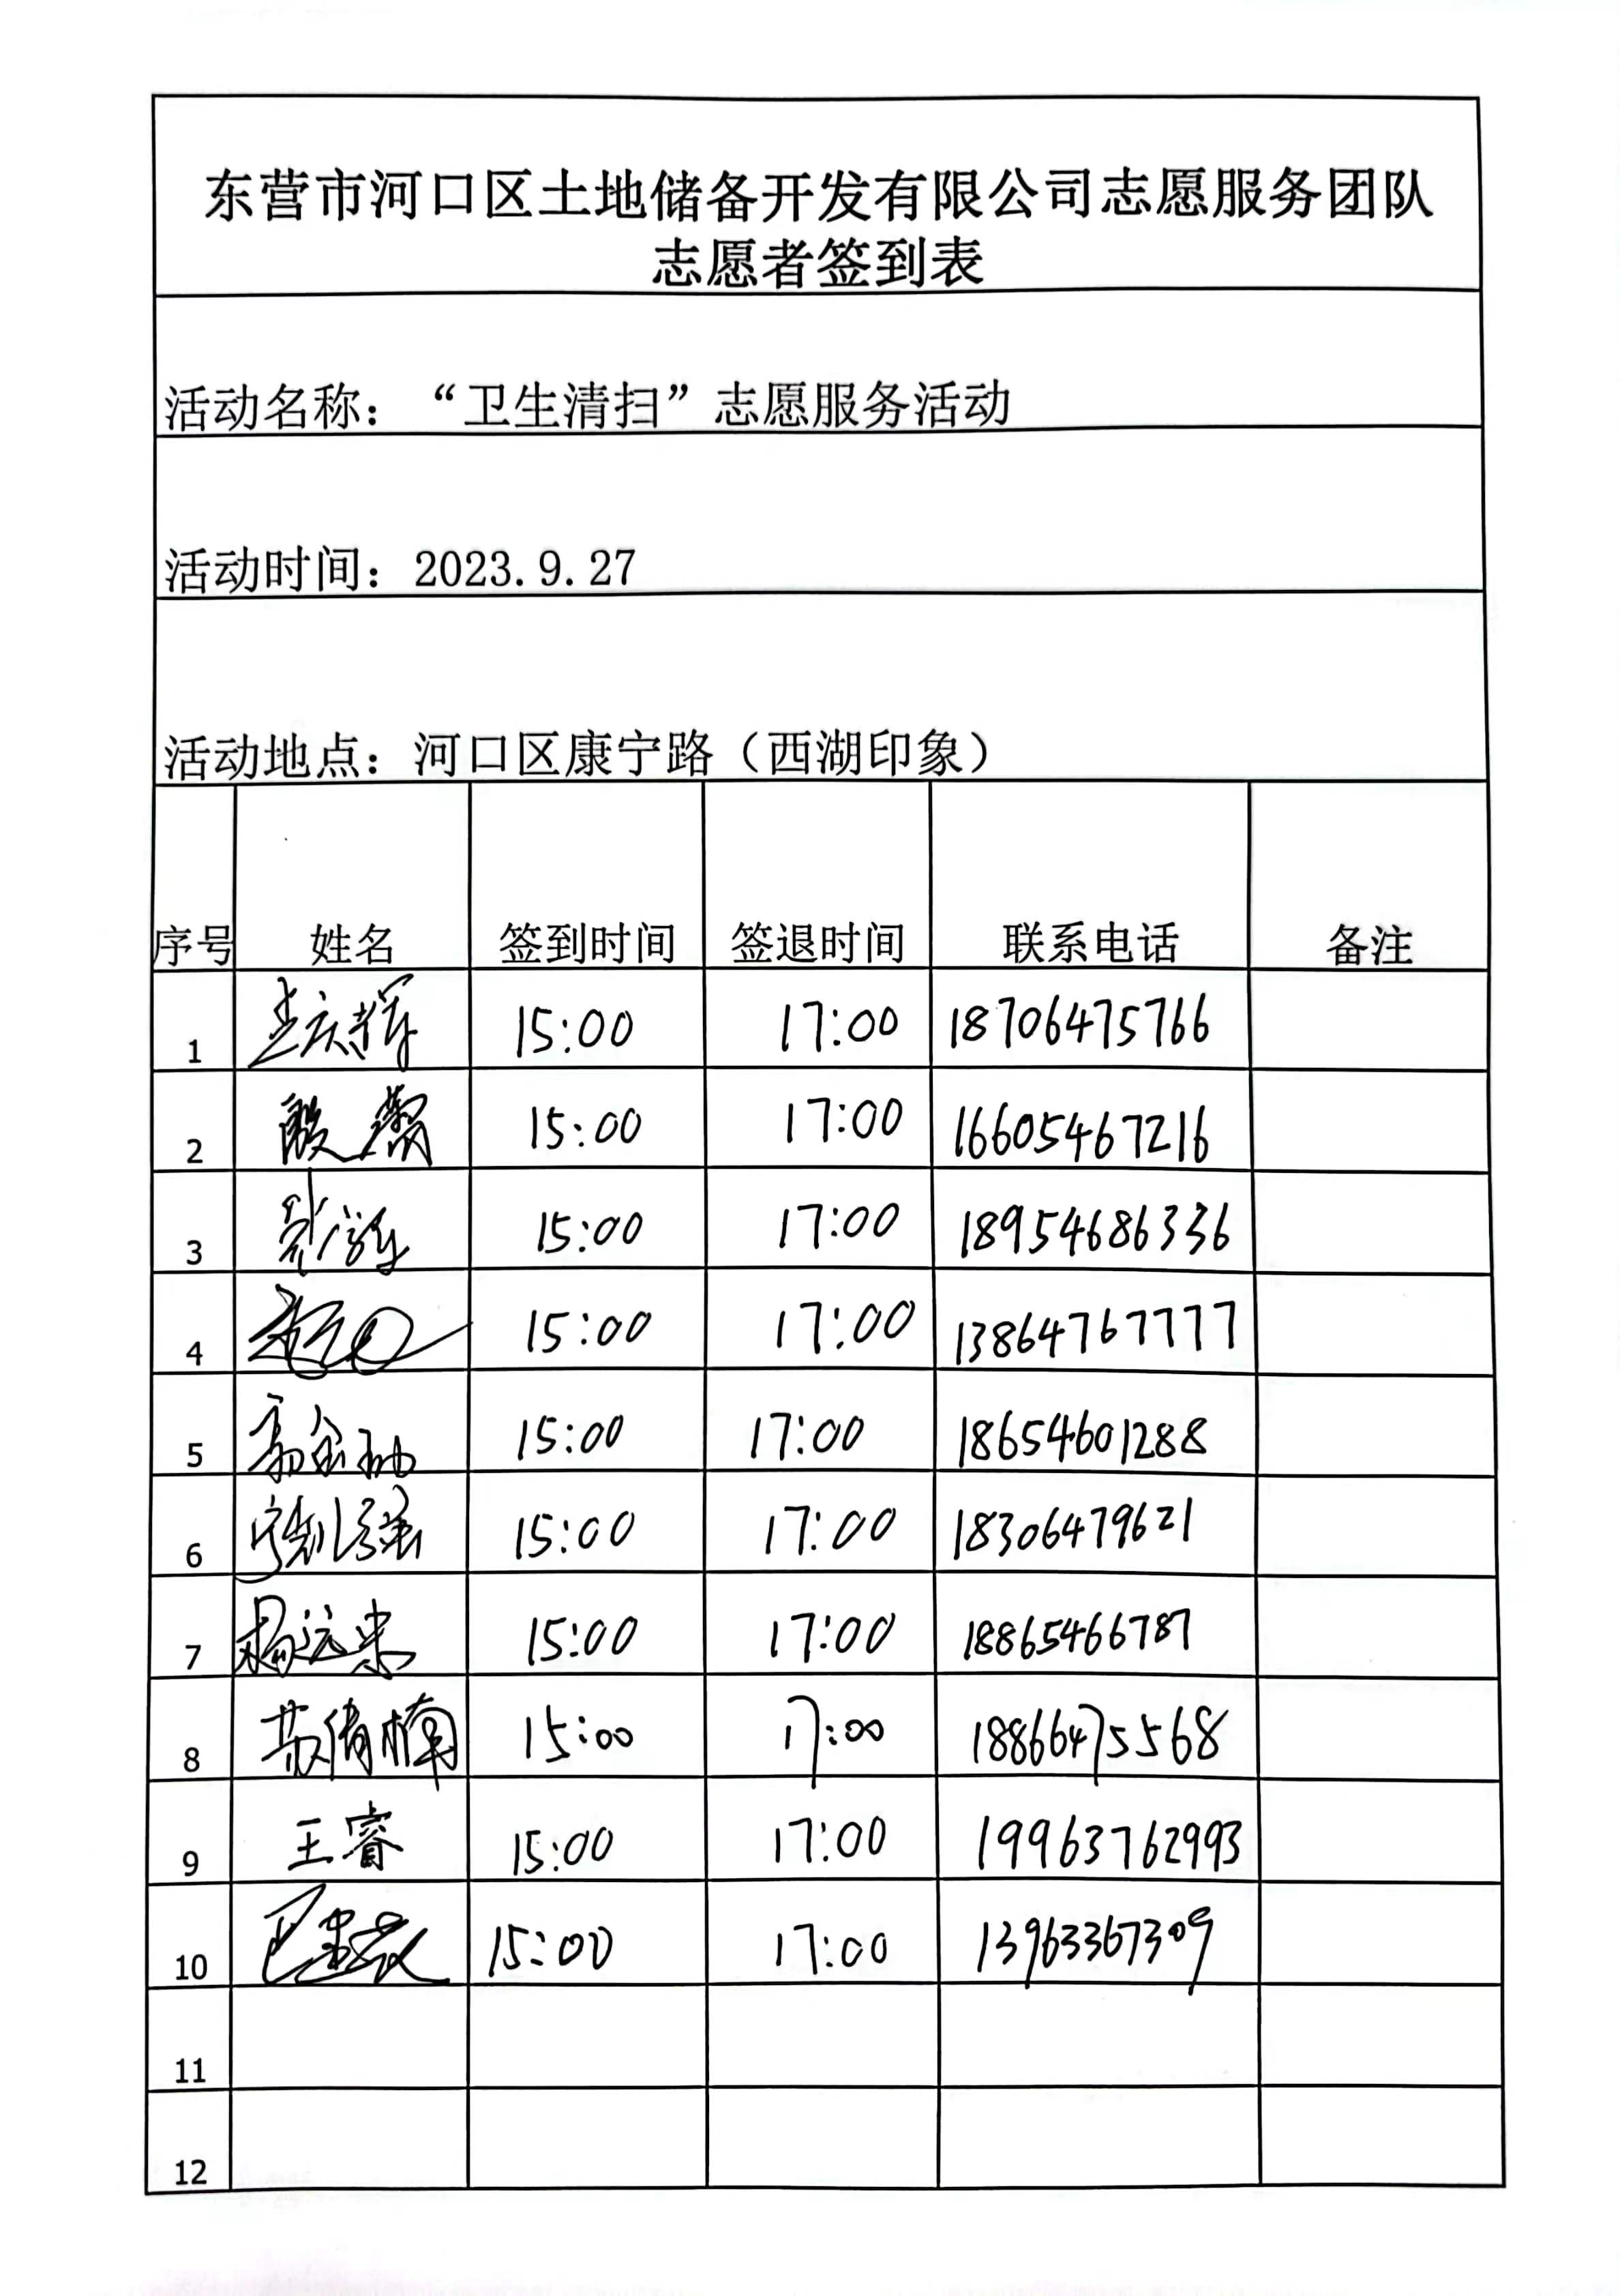 东营市河口区土地储备开发有限公司志愿服务团队
志愿者签到表
活动名称：“卫生清扫”志愿服务活动
活动时间：2023.9.27
活动地点：河口区康宁路（西湖印象）
序号 姓名 签到时间 签退时间 联系电话 备注
1 15:00 17:00 18706475766
2 15:00 17:00 16605467216
3 15:00 17:00 18954686336
4 15:00 17:00 13864767777
5 15:00 17:00 18654601288
6 15:00 17:00 18306479621
7 杨远来 15:00 17:00 18865466787
8 苏倩楠 15:00 17:00 18866475568
9 王睿 15:00 17:00 19963762993
10 15:00 17:00 13963367309
11
12